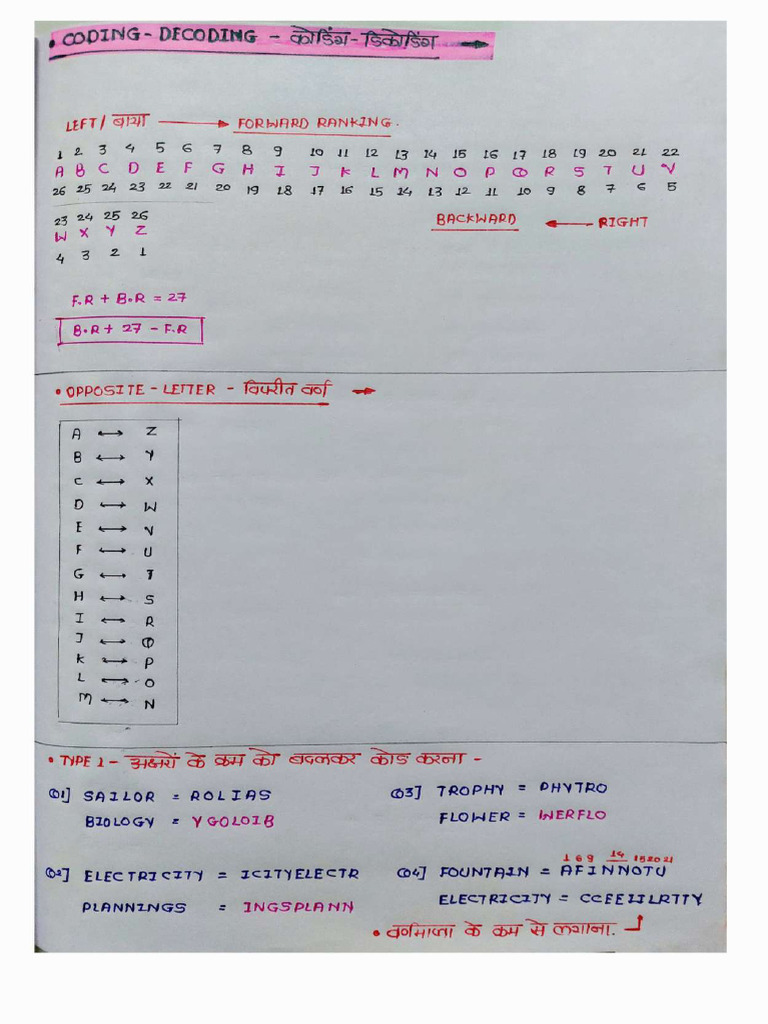 • CODING - DECODING - कोडिंग - डिकोडिंग →
LEFT / बाया → FORWARD RANKING.
1 2 3 4 5 6 7 8 9 10 11 12 13 14 15 16 17 18 19 20 21 22
A B C D E F G H I J K L M N O P Q R S T U V
26 25 24 23 22 21 20 19 18 17 16 15 14 13 12 11 10 9 8 7 6 5
23 24 25 26
W X Y Z
4 3 2 1
BACKWARD ← RIGHT
F.R + B.R = 27
B.R + 27 - F.R
• OPPOSITE - LETTER - विपरीत वर्ण →
A ↔ Z
B ↔ Y
C ↔ X
D ↔ W
E ↔ V
F ↔ U
G ↔ T
H ↔ S
I ↔ R
J ↔ Q
K ↔ P
L ↔ O
M ↔ N
• TYPE 1 - अक्षरों के क्रम को बदलकर कोड करना -
Q1] SAILOR = ROLIAS
BIOLOGY = YGOLOIB
Q2] ELECTRICITY = ICITYELECTR
PLANNINGS = INGSPLANN
Q3] TROPHY = PHYTRO
FLOWER = WERFLO
1 6 9 14 15 20 21
Q4] FOUNTAIN = AFINNOTU
ELECTRICITY = CCEEIILRTTY
• वर्णमाला के क्रम से लगाना.